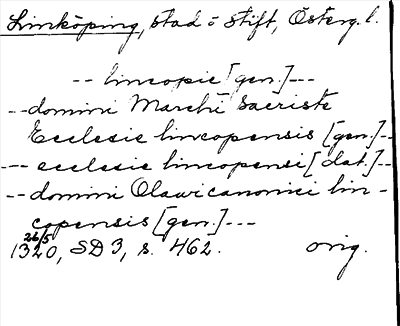 Linköping, stad o stift, Österg. l.
-- lincopie [gen.] ---
-- domini Marchi sacriste
Ecclesie lincopensis [gen.] --
--- ecclesie lincopensi [dat.] --
-- domini Olawi canonici lin-
copensis [gen.] ---
26/5
1320, SD 3, s. 462. orig.